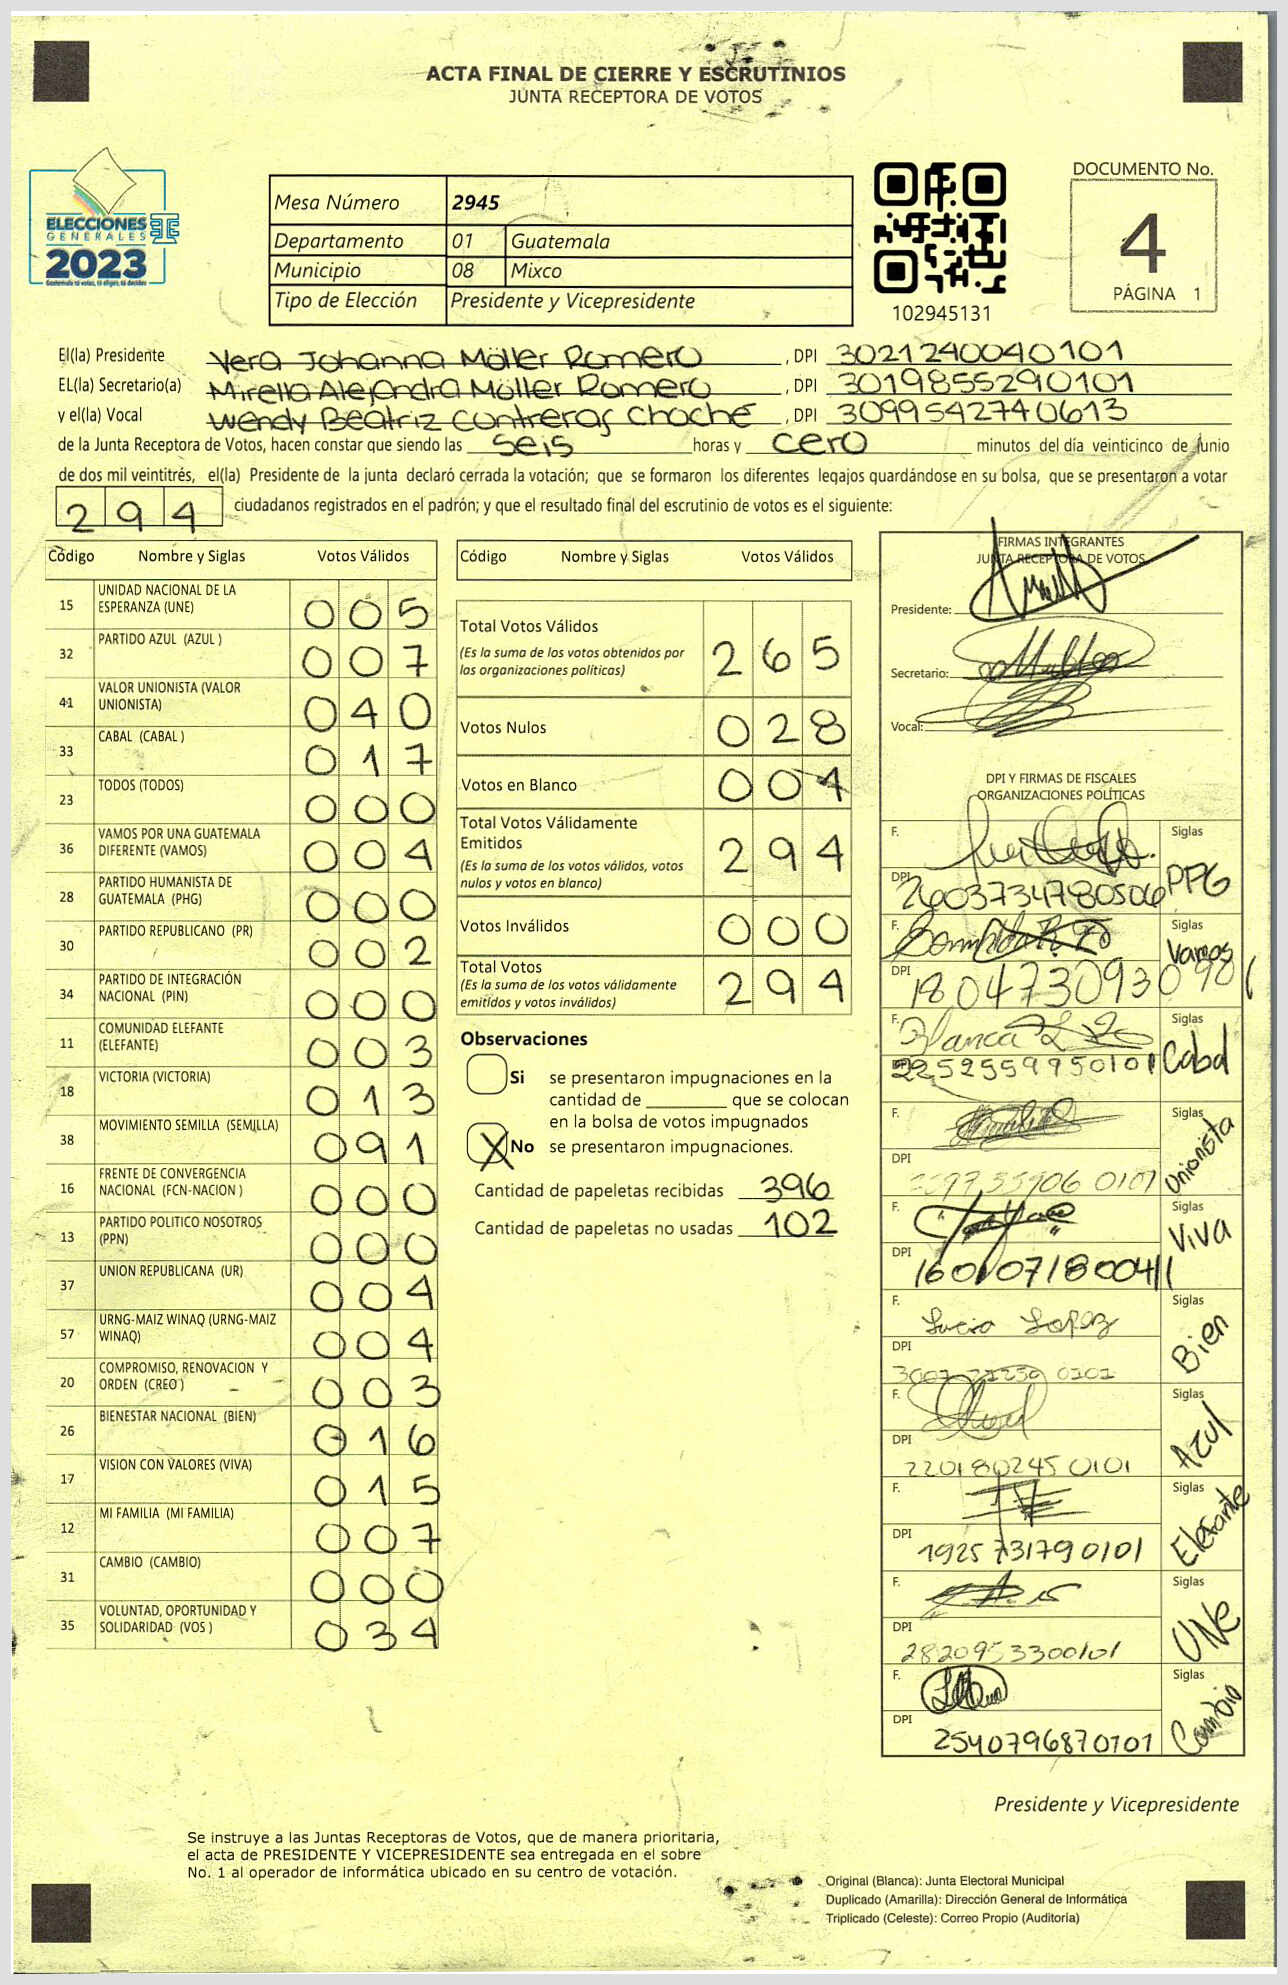 ACTA FINAL DE CIERRE Y ESCRUTINIOS
JUNTA RECEPTORA DE VOTOS
ELECCIONES
GENERALES
2023
Guatemala tú votas, tú eliges, tú decides
Mesa Número 2945
Departamento 01 Guatemala
Municipio 08 Mixco
Tipo de Elección Presidente y Vicepresidente
102945131
DOCUMENTO No.
4
PÁGINA 1
El(la) Presidente Vera Johanna Möller Romero , DPI 3021240040101
EL(la) Secretario(a) Mirella Alejandra Möller Romero , DPI 3019855290101
y el(la) Vocal Wendy Beatriz Contreras Choché , DPI 3099542740613
de la Junta Receptora de Votos, hacen constar que siendo las seis horas y cero minutos del día veinticinco de Junio
de dos mil veintitrés, el(la) Presidente de la junta declaró cerrada la votación; que se formaron los diferentes legajos guardándose en su bolsa, que se presentaron a votar
294 ciudadanos registrados en el padrón; y que el resultado final del escrutinio de votos es el siguiente:
Código Nombre y Siglas Votos Válidos
15 UNIDAD NACIONAL DE LA ESPERANZA (UNE) 005
32 PARTIDO AZUL (AZUL ) 007
41 VALOR UNIONISTA (VALOR UNIONISTA) 040
33 CABAL (CABAL ) 017
23 TODOS (TODOS) 000
36 VAMOS POR UNA GUATEMALA DIFERENTE (VAMOS) 004
28 PARTIDO HUMANISTA DE GUATEMALA (PHG) 000
30 PARTIDO REPUBLICANO (PR) 002
34 PARTIDO DE INTEGRACIÓN NACIONAL (PIN) 000
11 COMUNIDAD ELEFANTE (ELEFANTE) 003
18 VICTORIA (VICTORIA) 013
38 MOVIMIENTO SEMILLA (SEMILLA) 091
16 FRENTE DE CONVERGENCIA NACIONAL (FCN-NACION ) 000
13 PARTIDO POLITICO NOSOTROS (PPN) 000
37 UNION REPUBLICANA (UR) 004
57 URNG-MAIZ WINAQ (URNG-MAIZ WINAQ) 004
20 COMPROMISO, RENOVACION Y ORDEN (CREO ) 003
26 BIENESTAR NACIONAL (BIEN) 016
17 VISION CON VALORES (VIVA) 015
12 MI FAMILIA (MI FAMILIA) 007
31 CAMBIO (CAMBIO) 000
35 VOLUNTAD, OPORTUNIDAD Y SOLIDARIDAD (VOS ) 034
Código Nombre y Siglas Votos Válidos
Total Votos Válidos 265
(Es la suma de los votos obtenidos por
las organizaciones políticas)
Votos Nulos 028
Votos en Blanco 001
Total Votos Válidamente
Emitidos 294
(Es la suma de los votos válidos, votos
nulos y votos en blanco)
Votos Inválidos 000
Total Votos 294
(Es la suma de los votos válidamente
emitidos y votos inválidos)
Observaciones
Si se presentaron impugnaciones en la
cantidad de que se colocan
en la bolsa de votos impugnados
X No se presentaron impugnaciones.
Cantidad de papeletas recibidas 396
Cantidad de papeletas no usadas 102
FIRMAS INTEGRANTES
JUNTA RECEPTORA DE VOTOS
Presidente:
Secretario:
Vocal:
DPI Y FIRMAS DE FISCALES
ORGANIZACIONES POLÍTICAS
F. Siglas
DPI 2603734780506 PPG
F. Siglas Vamos
DPI
F. Blanca Siglas
2252559950101 Cabal
F. Siglas Unionista
DPI
F. Siglas Viva
DPI
F. Lucia Lopez Siglas Bien
DPI
F. Siglas Azul
DPI 2201802450101
F. Siglas Elefante
DPI 1925731790101
F. Siglas UNE
DPI 2820953300101
F. Siglas Cambio
DPI 2540796870101
Presidente y Vicepresidente
Se instruye a las Juntas Receptoras de Votos, que de manera prioritaria,
el acta de PRESIDENTE Y VICEPRESIDENTE sea entregada en el sobre
No. 1 al operador de informática ubicado en su centro de votación.
Original (Blanca): Junta Electoral Municipal
Duplicado (Amarilla): Dirección General de Informática
Triplicado (Celeste): Correo Propio (Auditoría)